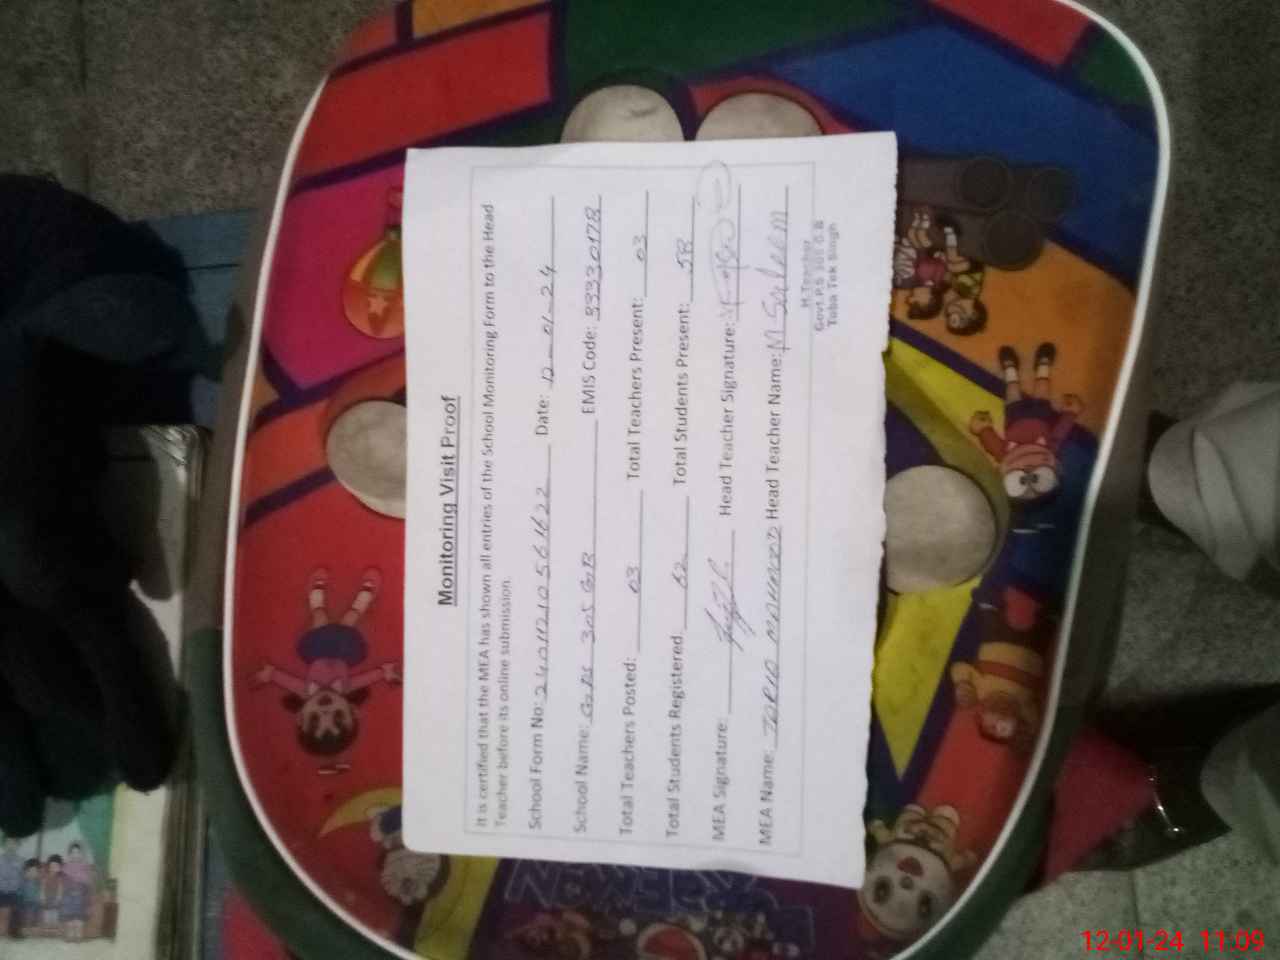 Monitoring Visit Proof
It is certified that the MEA has shown all entries of the School Monitoring Form to the Head
Teacher before its online submission.
School Form No: 2401121056162 2 Date: 12-01-24
School Name: GPS 305 GB EMIS Code: 33330178
Total Teachers Posted: 03 Total Teachers Present: 03
Total Students Registered: 62 Total Students Present: 58
MEA Signature: Head Teacher Signature:
MEA Name: TARIQ MAHMOOD Head Teacher Name: M Saleem
H.Teacher
Govt.P.S 305 G.B
Toba Tek Singh
12-01-24 11:09